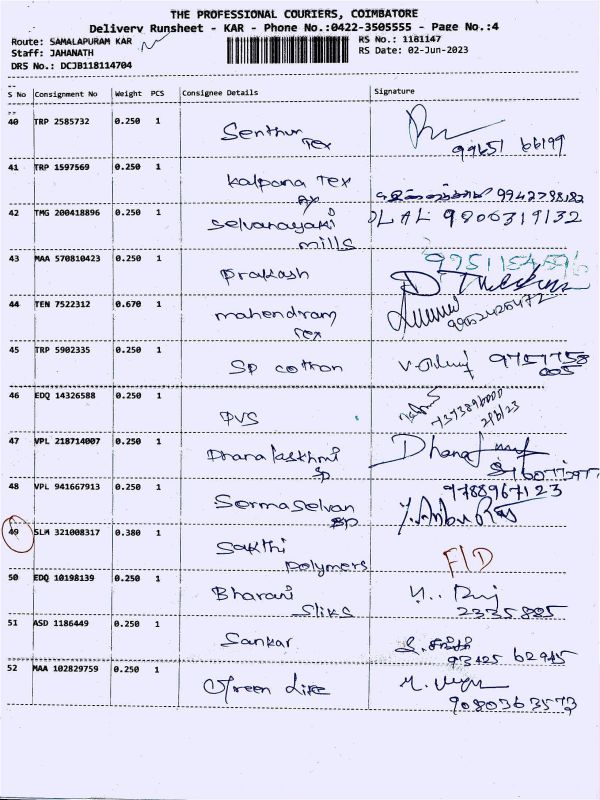 THE PROFESSIONAL COURIERS, COIMBATORE
Delivery Runsheet - KAR - Phone No.:0422-3505555 - Page No.:4
Route: SAMALAPURAM KAR
RS No.: 1181147
Staff: JAHANATH
RS Date: 02-Jun-2023
DRS No.: DCJB118114704
S No Consignment No Weight PCS Consignee Details Signature
40 TRP 2585732 0.250 1
Senthur
Tex
99651 66199
41 TRP 1597569 0.250 1
Kalpana Tex
9942798182
42 TMG 200418896 0.250 1
Selvanayaki
mills
DLAL 9806319132
43 MAA 570810423 0.250 1
Prakash
44 TEN 7522312 0.670 1
mahendram
Tex
9952426472
45 TRP 5902335 0.250 1
SP cotton
9757758
005
46 EDQ 14326588 0.250 1
PVS
7373896000
2/6/23
47 VPL 218714007 0.250 1
Dhanalakshmi
SP
48 VPL 941667913 0.250 1
9788967123
Sermaselvan
SP
Y. Anbu Raj
49 SLM 321008317 0.380 1
Sakthi
polymers
F/D
50 EDQ 10198139 0.250 1
Bharani
Sliks
2335885
51 ASD 1186449 0.250 1
Sankar
93425 62945
52 MAA 102829759 0.250 1
Green Like
9080363573